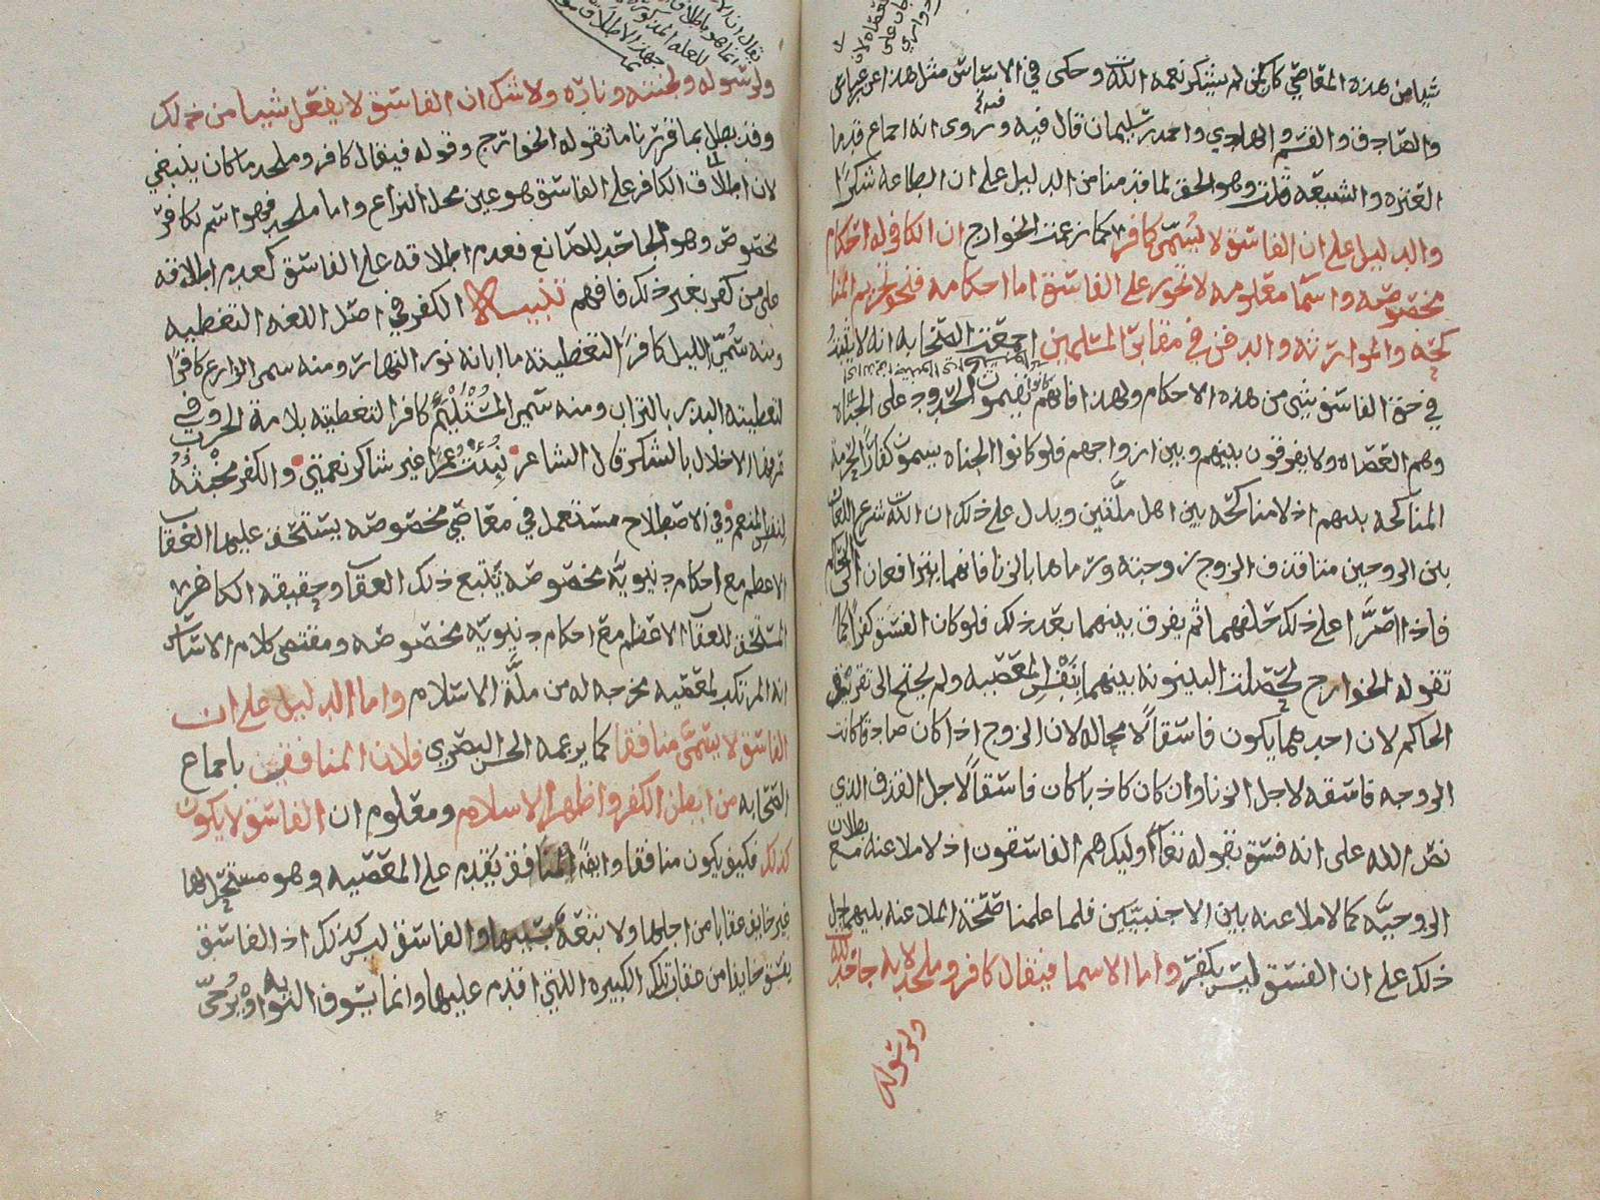 شيا من هذه المعاصي كان لم يشكر نعمه الله وحكى في الاساس مثل هذا عن ابن عباس
والصادق والقسم والهادي واحمد بن سليمان قال فيه وروى انه اجماع قدما
العتره والشيعه قلت وهو الحق لما قدمنا من الدليل على ان الطاعه شكرا
والدليل على ان الفاسق لا يسمى كافرا كما زعمت الخوارج ان الكافر له احكام
مخصوصه واسما معلومه لا تجوز على الفاسق اما احكامه فنحو تحريم المنا
كحه والموارثه والدفن في مقابر المسلمين اجمعت الصحابه انه لا يثبت
في حق الفاسق شي من هذه الاحكام ولهذا فانهم كانوا يقيمون الحدود على الجناه
وهم العصاه ولا يفرقون بينهم وبين ازواجهم فلو كانوا الجناه يسمون كفارا لحرمة
المناكحه بينهم اذ لا مناكحه بين اهل ملتين ويدل على ذلك ان الله شرع اللعان
بين الزوجين متى قذف الزوج زوجته ورماها بالزنا فانهما يترافعان الى الحاكم
فاذا اصرا على ذلك حلفهما ثم يفرق بينهما بعد ذلك فلو كان الفسق كفرا كما
تقوله الخوارج لحصلت البينونه بينهما بنفس المعصيه ولم يحتج الى تفريق
الحاكم لان احدهما يكون فاسقا لا محاله لان الزوج اذا كان صادقا كانت
الزوجه فاسقه لاجل الزنا وان كان كاذبا كان فاسقا لاجل القذف الذي
نص الله على انه فسق بقوله تعا اوليك هم الفاسقون اذ لا ملاعنه مع بطلان
الزوجيه كما لا ملاعنه بين الاجنبيين فلما علمنا صحة الملاعنه بينهما دل
ذلك على ان الفسق ليس بكفر واما الاسما فيقال كافر وملحد لانه جاحد لله
ولرسوله
ولرسوله وجنته وناره ولا شك ان الفاسق لا يفعل شيا من ذلك
وقد بطل بما قررنا ما تقوله الخوارج وقوله فيقال كافر وملحد ما كان ينبغي
لان اطلاق الكافر على الفاسق هو عين محل النزاع واما ملحد فهو اسم لكافر
مخصوص وهو الجاحد للصانع فعدم اطلاقه على الفاسق كعدم اطلاقه
على من كفر بغير ذلك فافهم تنبيه الكفر في اصل اللغه التغطيه
ومنه سمي الليل كافرا لتغطيته ما ابانه نور النهار ومنه سمي الزارع كافرا
لتغطيته البذر بالتراب ومنه سمي المستلئم كافرا لتغطيته بلامة الحرب وفي
عرفها الاخلال بالشكر قال الشاعر نبئت عمرا غير شاكر نعمتي والكفر مخبثة
لنفس المنعم وفي الاصطلاح مستعمل في معاصي مخصوصه يستحق عليها العقاب
الاعظم مع احكام دنيويه مخصوصه يتبع ذلك العقاب وحقيقه الكافر
المستحق للعقاب الاعظم مع احكام دنيويه مخصوصه ومقتضى كلام الاساس
انه المرتكب لمعصيه مخرجه له من ملة الاسلام واما الدليل على ان
الفاسق لا يسمى منافقا كما يزعمه الحسن البصري فلان المنافقين باجماع
الصحابه من ابطن الكفر واظهر الاسلام ومعلوم ان الفاسق لا يكون
كذلك فكيف يكون منافقا وايضا المنافق يقدم على المعصيه وهو مستحل لها
غير خايف عقابا من اجلها ولا تبعة بسببها والفاسق ليس كذلك اذ الفاسق
يفسق خايفا من عقاب تلك الكبيره التي اقدم عليها وانما يسوف التوبه او يرجي